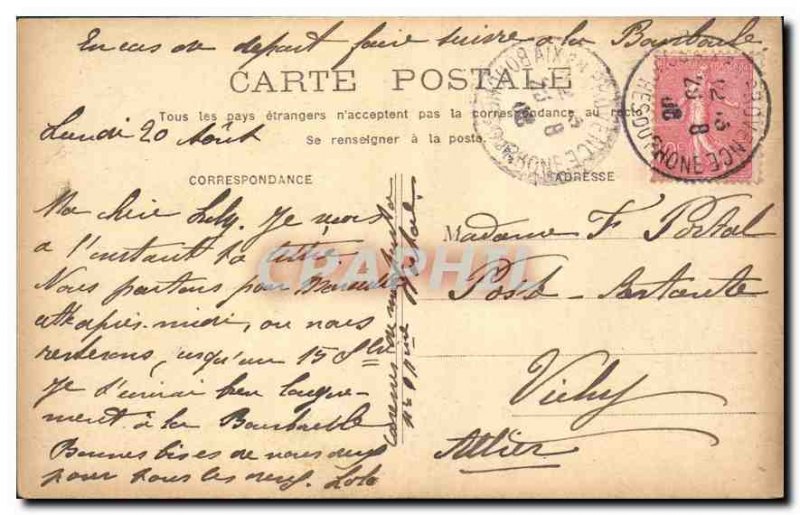 En cas de depart faire suivre a la Bourboule.
CARTE POSTALE
Tous les pays étrangers n'acceptent pas la correspondance au recto
Se renseigner à la poste
Lundi 20 Août
CORRESPONDANCE
ADRESSE
Ma chère Lily. Je reçois
à l'instant ta lettre.
Nous partons pour
après-midi, où nous
resterons, jusqu'au 15 Sbre
Je t'écrirai
ment à la Bourboule
Bonnes bises de nous deux
pour vous les deux. Lolo
Caresses de
Madame F. Portal
Poste-Restante
Vichy
Allier
CRAPHIL
AIX EN PROVENCE
RHONE
12-3
23
8
06
PROVENCE
BCHES-DU-RHONE